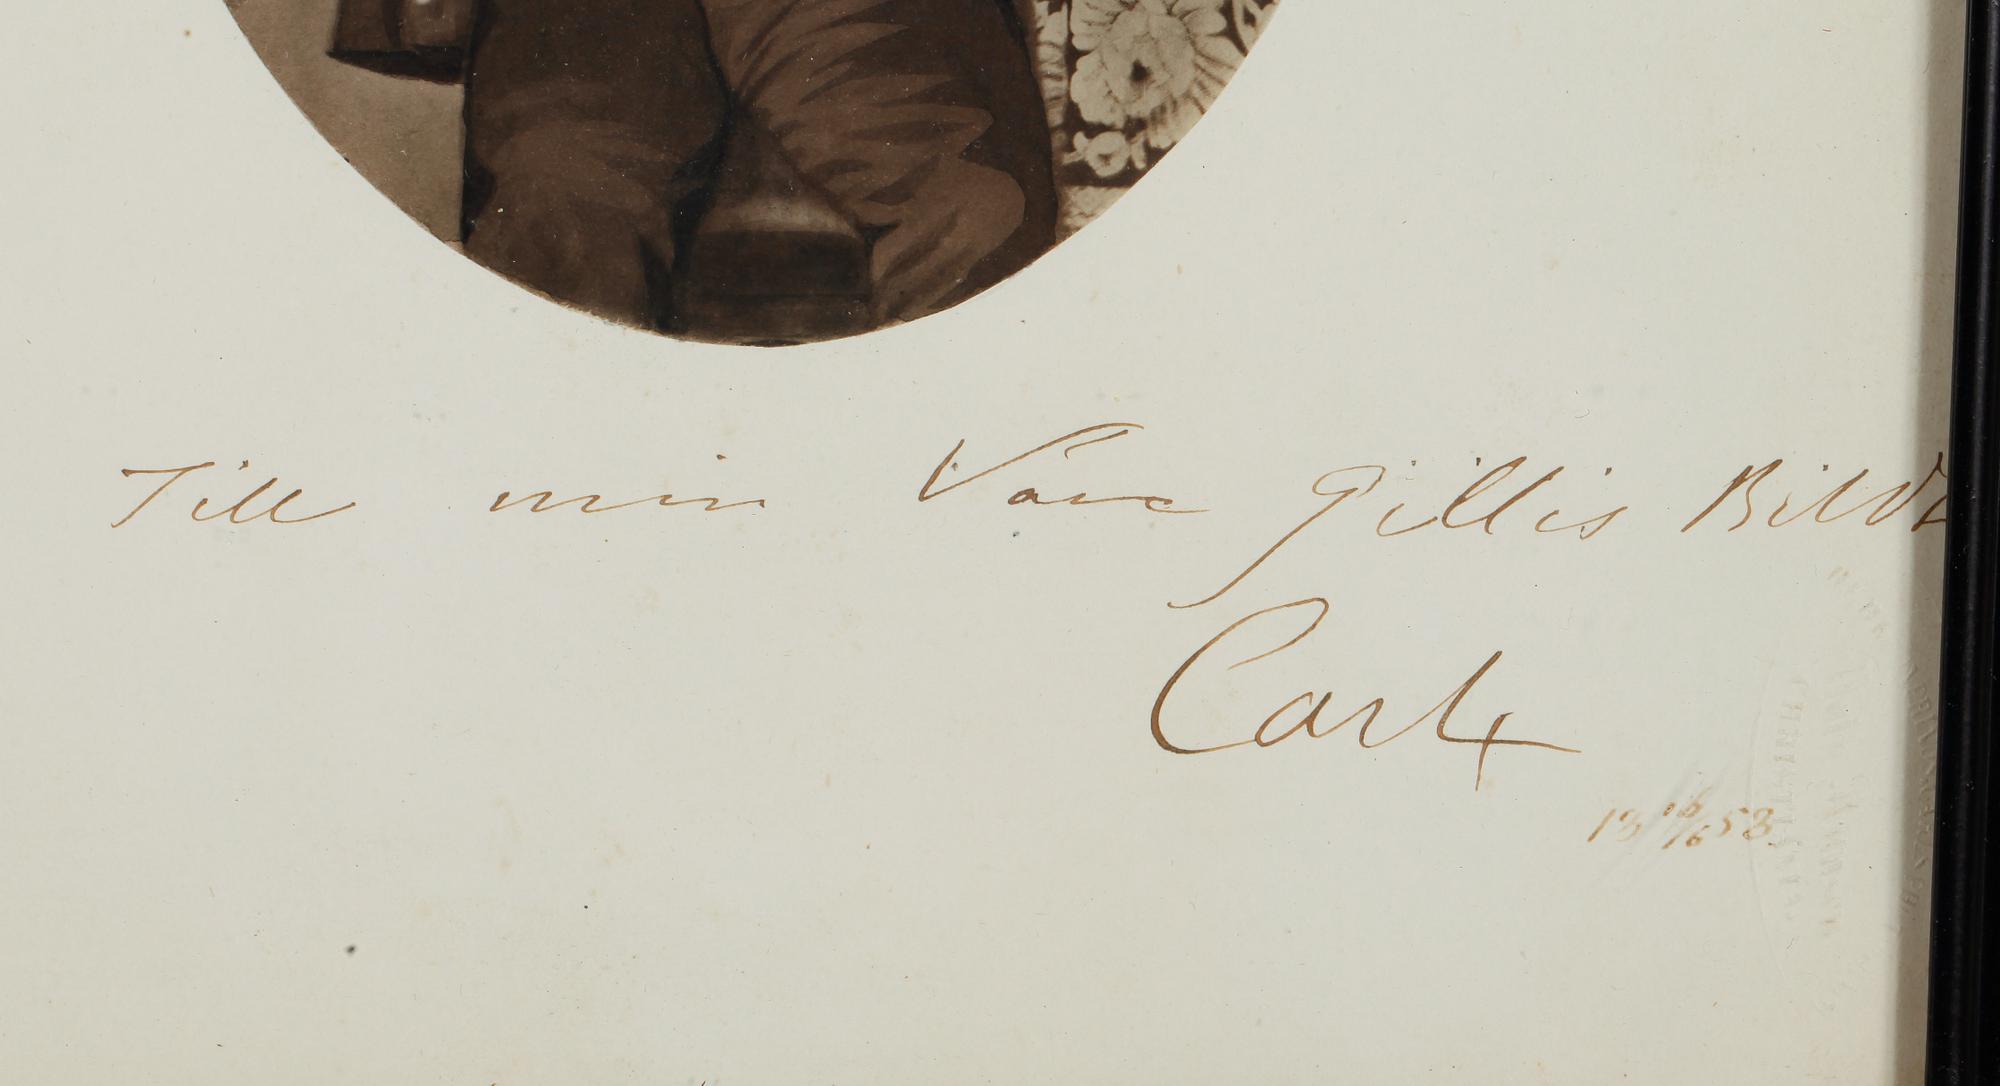 Till min Vän Gillis Bildt
Carl
18 16/6 53.